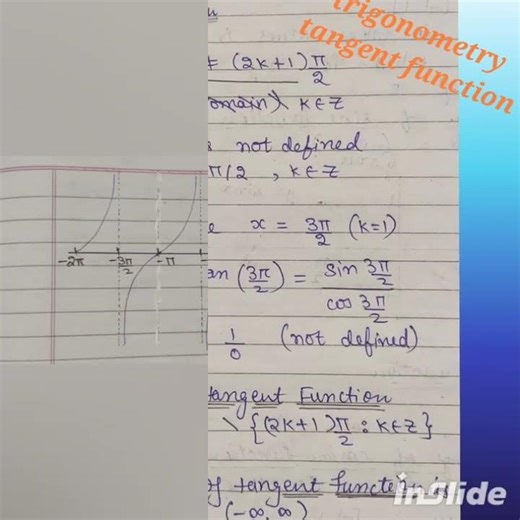 trigonometry
tangent function
≠ (2k+1) π/2
omain) k∈Z
not defined
π/2 , k∈Z
x = 3π/2 (k=1)
an (3π/2) = sin 3π/2 / cos 3π/2
1/0 (not defined)
tangent Function
\ {(2k+1) π/2 : k∈Z}
of tangent function is
(-∞, ∞)
-2π -3π/2 -π
inSlide